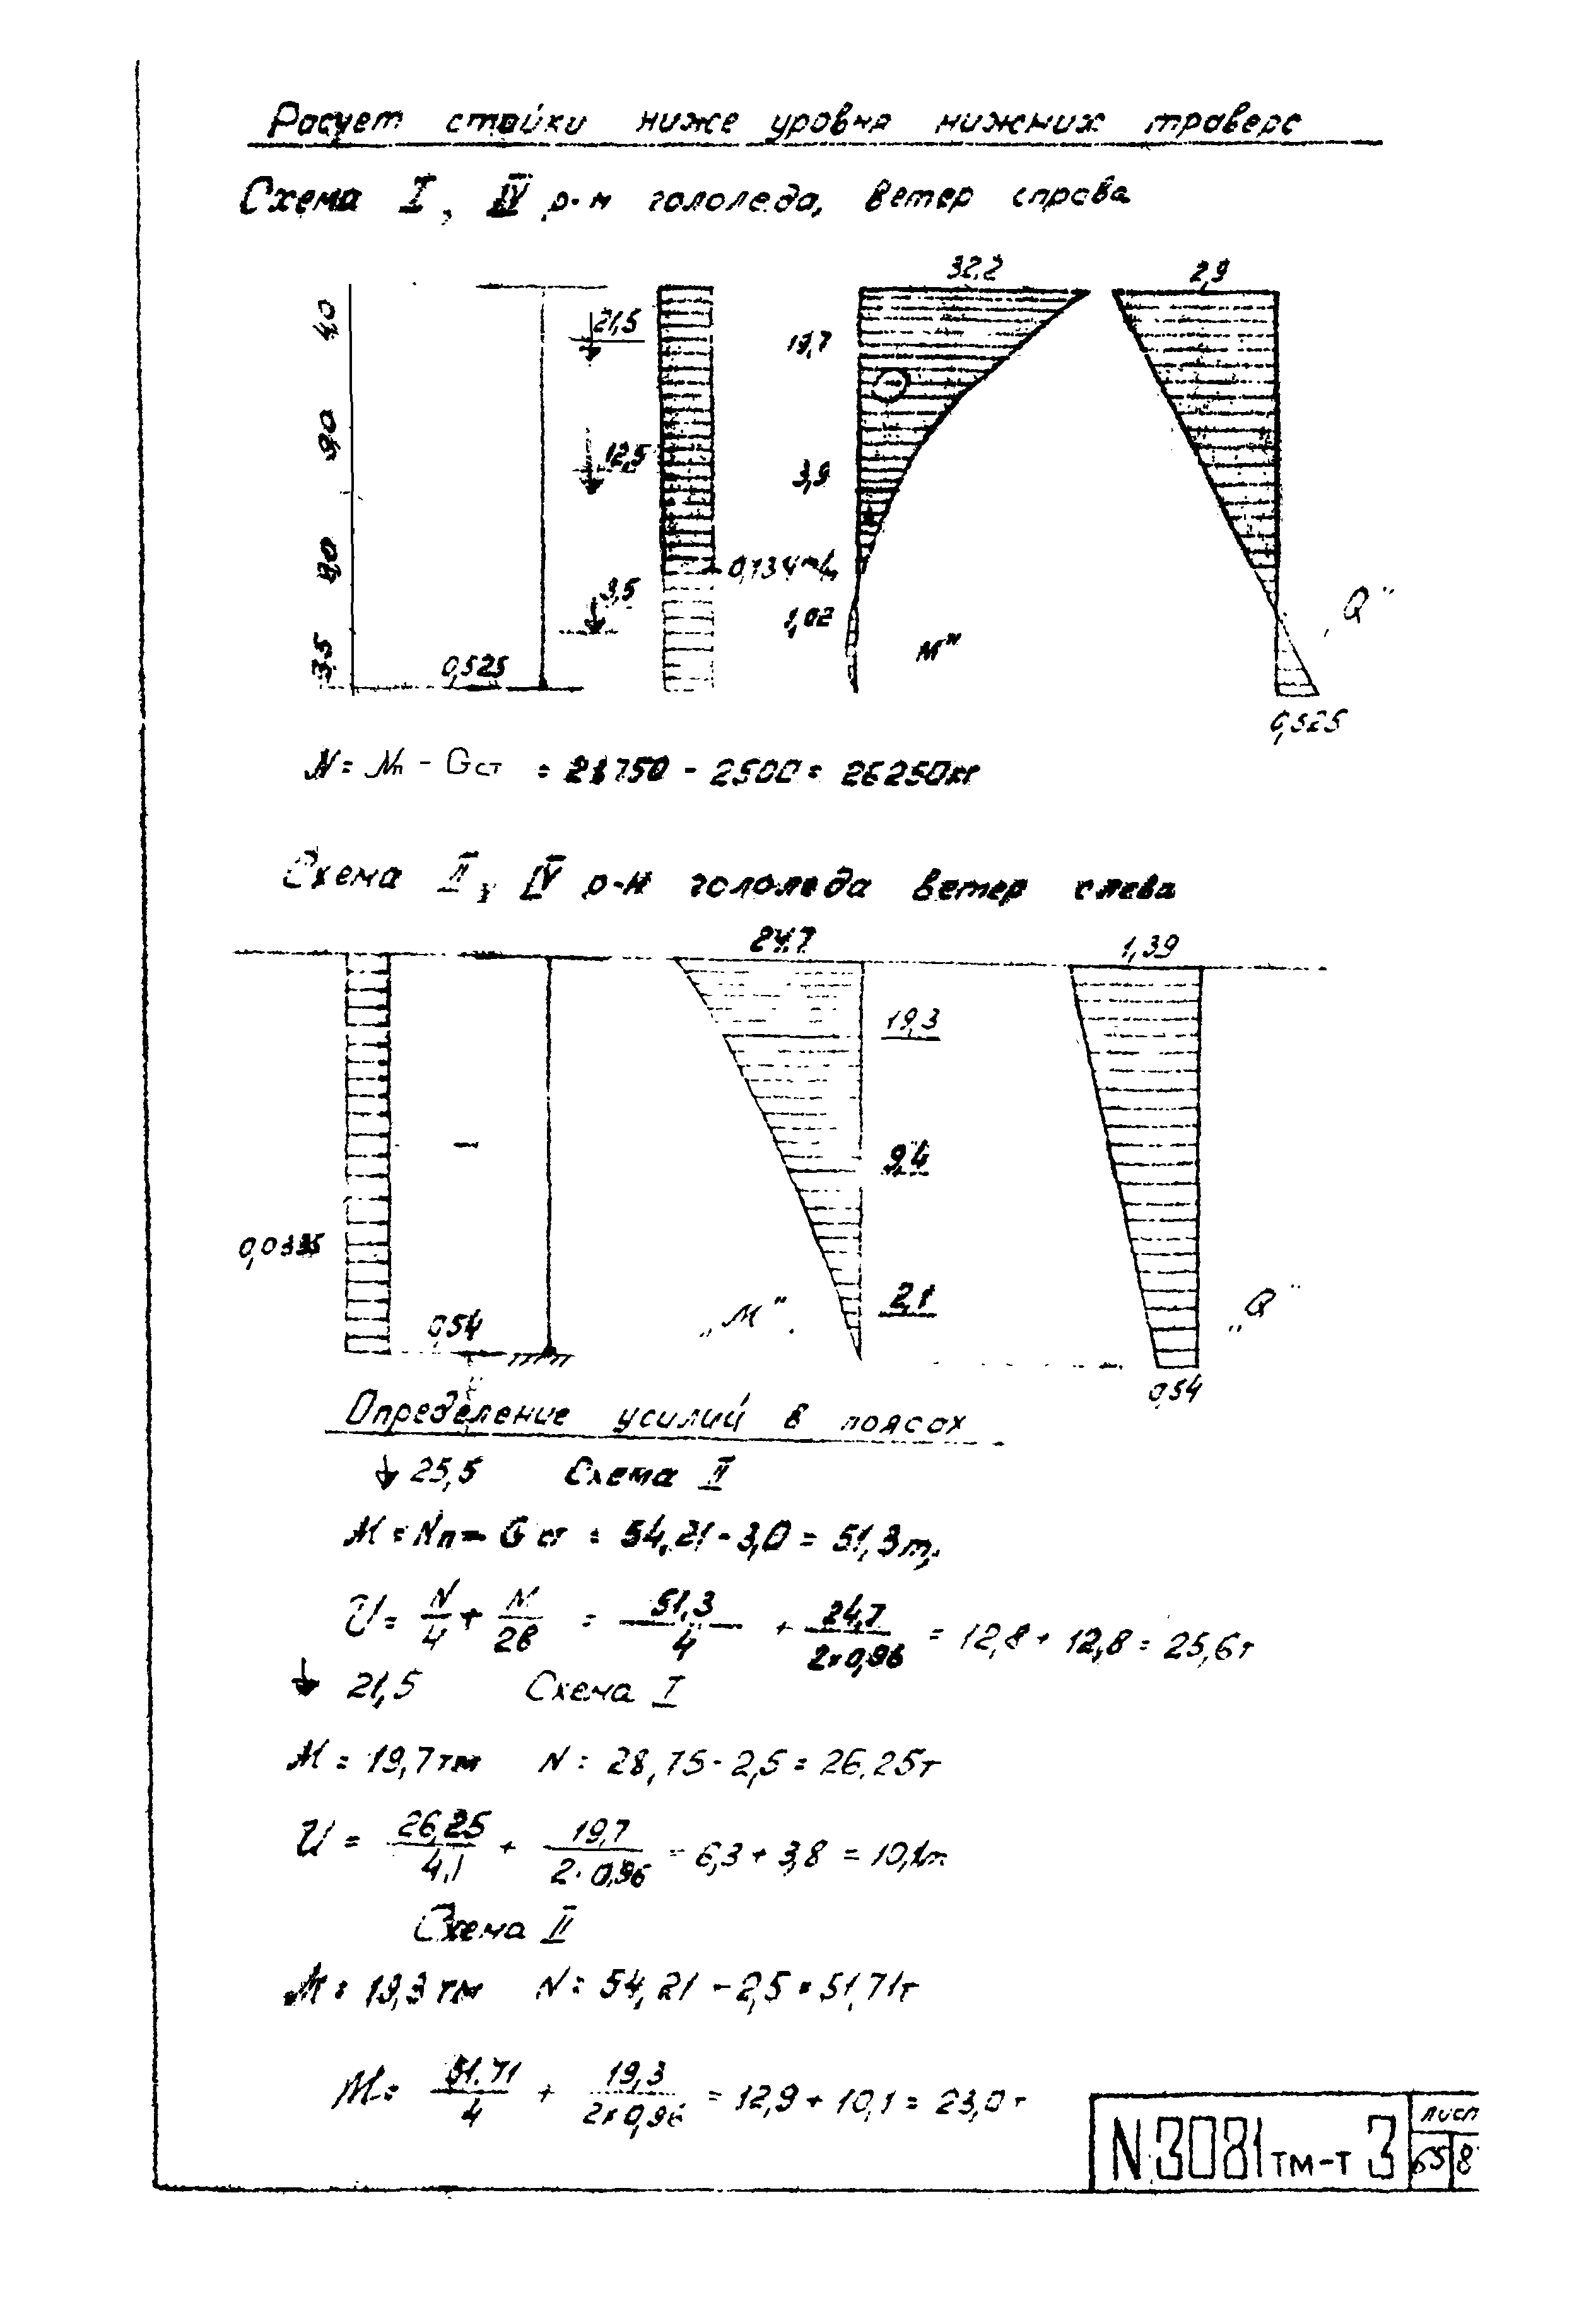 Расчет стойки ниже уровня нижних траверс
Схема I, IV р-н гололеда, ветер справа
32,2
2,9
4,0
21,5
19,7
9,0
12,5
3,9
9,0
0,134 т/м
3,5
1,02
„Q"
3,5
0,525
М"
0,525
N = Nп - Gст = 28750 - 2500 = 26250 кг
Схема II, IV р-н гололеда ветер слева
24,7
1,39
19,3
9,4
0,0335
2,1
0,54
„М"
„Q"
0,54
Определение усилий в поясах
↓ 25,5 Схема II
M = Nп - Gст = 54,21 - 3,0 = 51,3 т,
U = N/4 + M/2в = 51,3/4 + 24,7/2×0,96 = 12,8 + 12,8 = 25,6 т
↓ 21,5 Схема I
M = 19,7 тм N = 28,75 - 2,5 = 26,25 т
U = 26,25/4,1 + 19,7/2·0,96 = 6,3 + 3,8 = 10,1 т
Схема II
M = 19,3 тм N = 54,21 - 2,5 = 51,71 т
M = 51,71/4 + 19,3/2×0,96 = 12,9 + 10,1 = 23,0 т
N 3081 ТМ-Т 3
лист
65 8